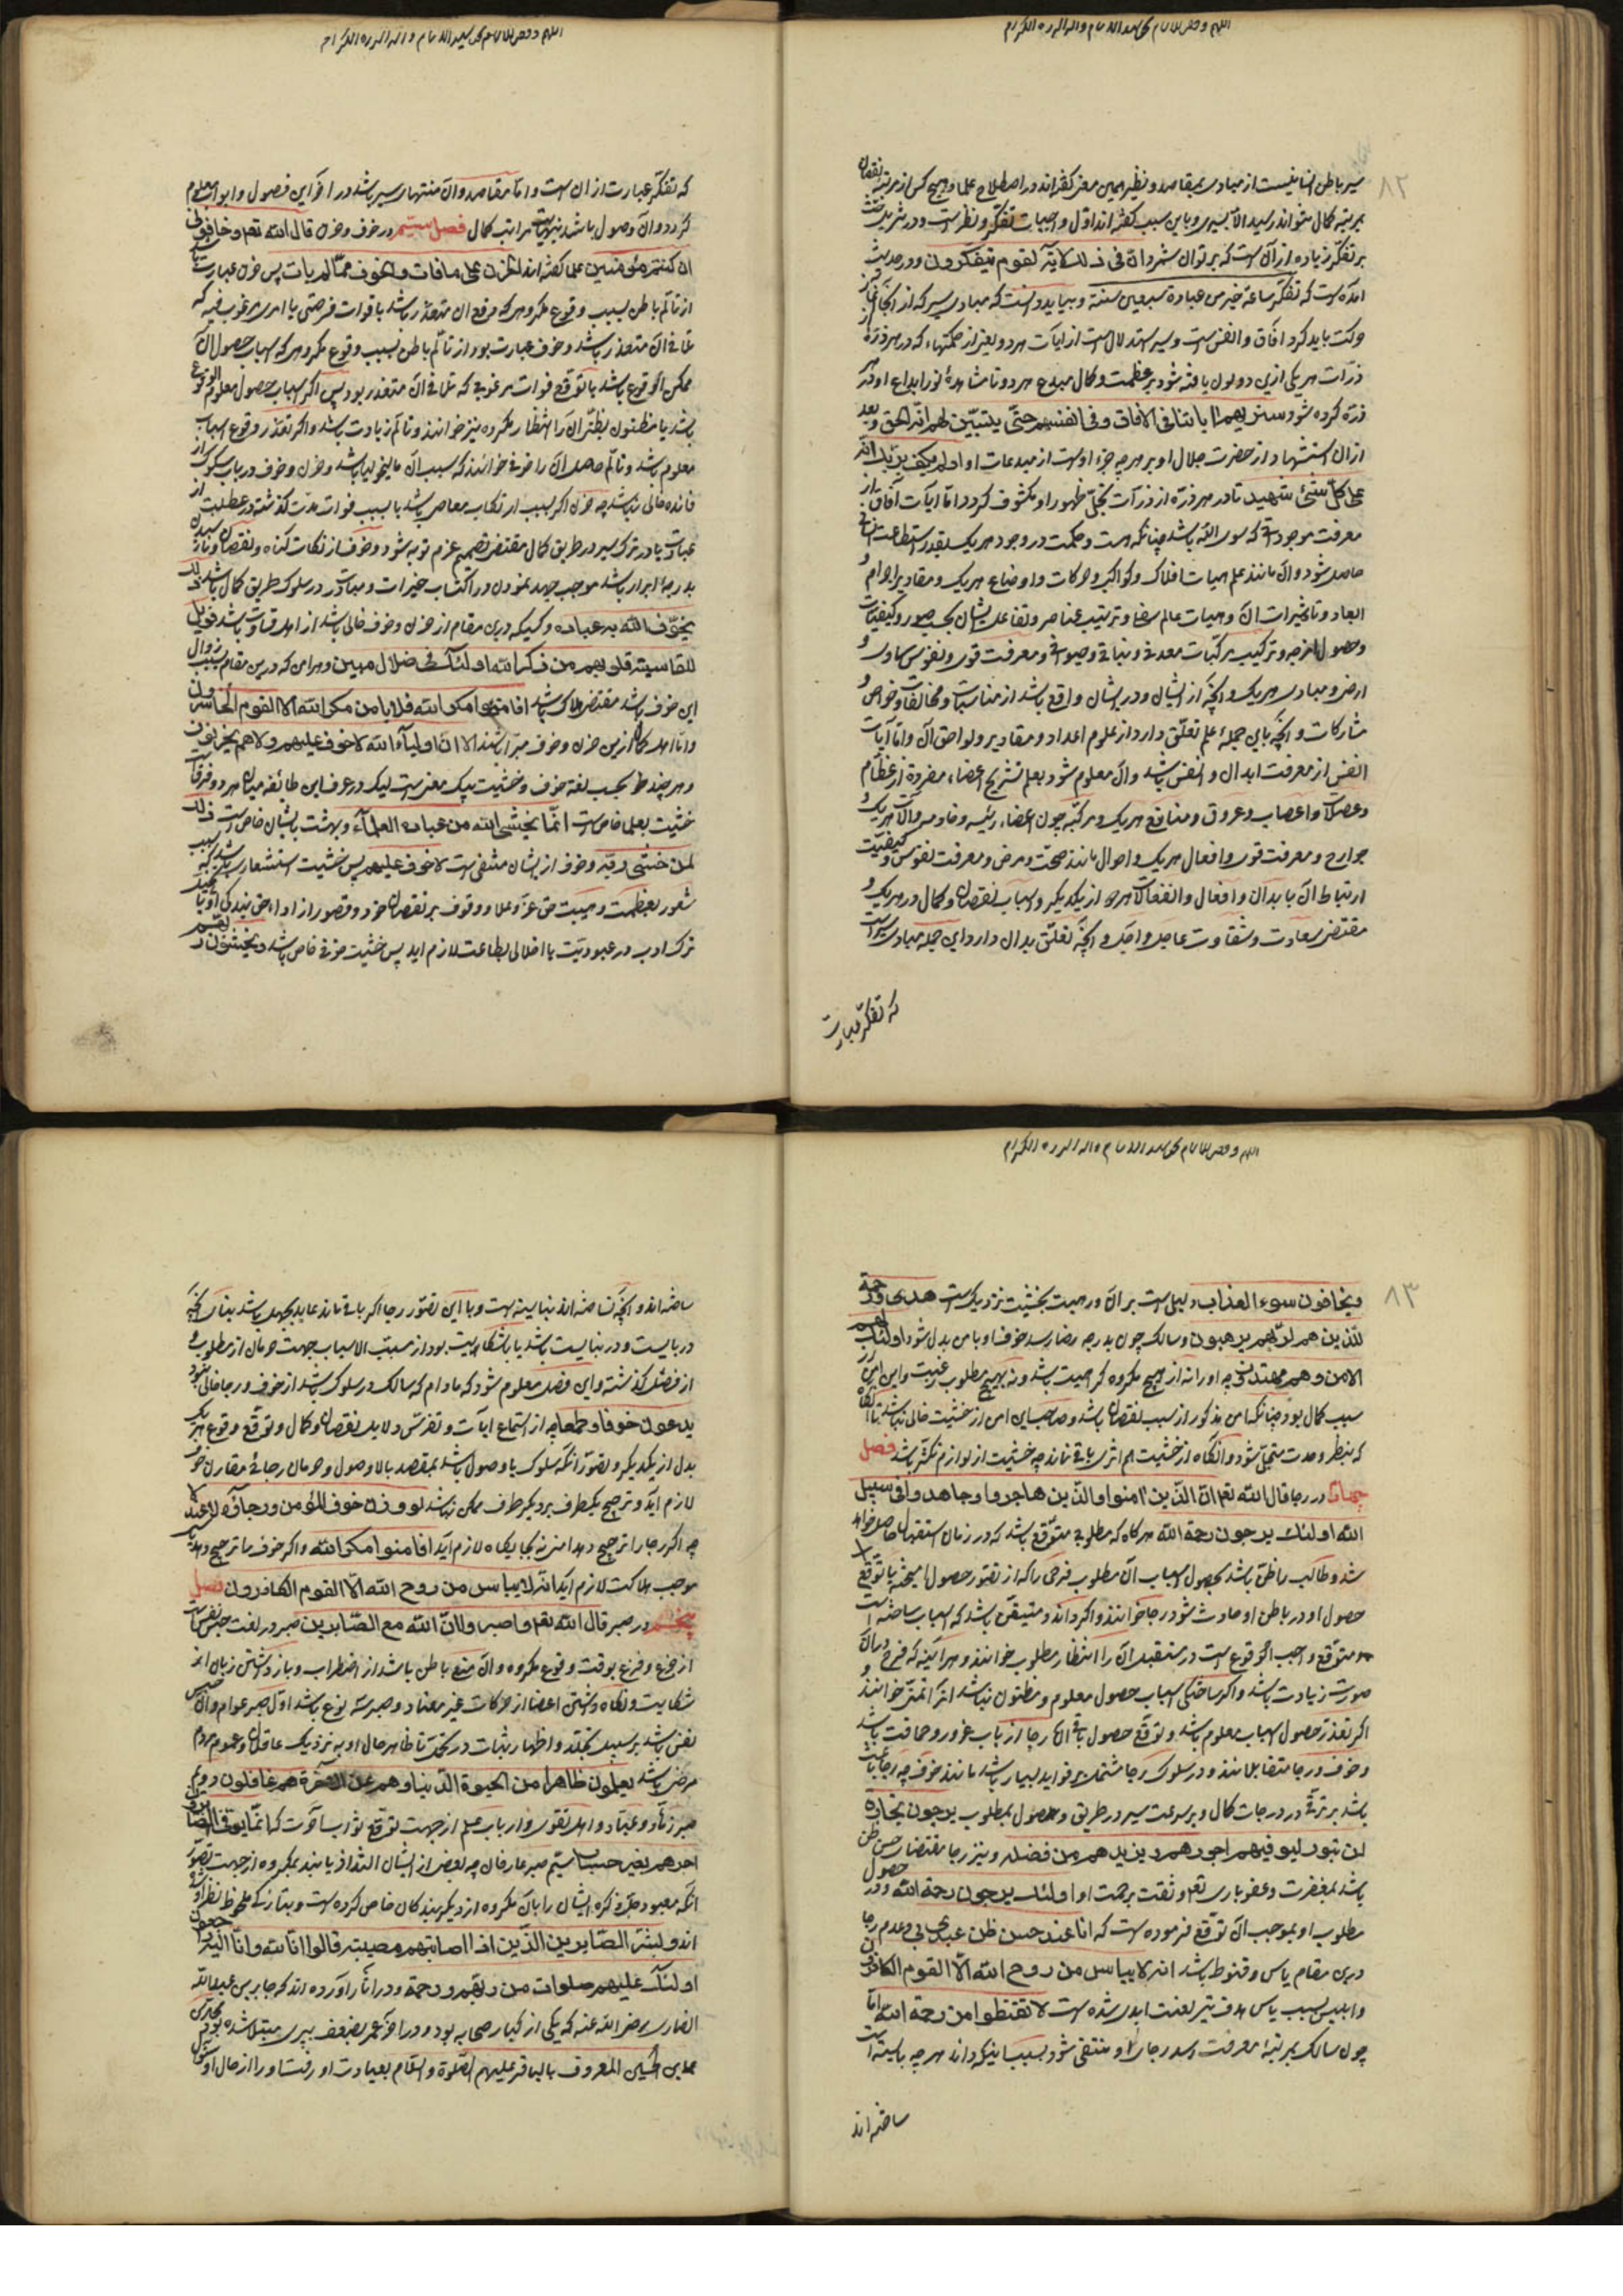 ٨٢
سیر باطن انسانیست از مبادی بمقاصد و نظیر همین معنی گفته‌اند در اصطلاح علما و هیچ کس از مرتبه نقصان
بمرتبه کمال نتواند رسید الا بسیری و باین سبب گفته‌اند اول واجبات تفکر و نظر است و در
بر تفکر زیاده از آن است که بر توان شمرد ان فی ذلک لایة لقوم یتفکرون و در حدیث
امده است که تفکر ساعة خیر من عبادة سبعین سنة و بباید دانست که مبادی سیر که از انجا آغاز
حرکت باید کرد افاق و انفس است و سیر استدلال است از ایات هر دو یعنی از حکمتهاء که در هر ذره
ذرات هر یکی ازین دو کون یافته شود بر عظمت و کمال مبدع هر دو تا مشاهدۀ نور ابداع او در هر
ذره کرده شود سنریهم ایاتنا فی الافاق و فی انفسهم حتی یتبین لهم انه الحق و بعد
ازان استشهاد از حضرت جلال او بر هر چه جزء اوست از مبدعات او اولم یکف بربک انه
علی کل شئ شهید تا در هر ذره از ذرات تجلی ظهور او مکشوف کردد اما ایات آفاق از
معرفت موجوداتی که سوی الله باشد چنانکه هست و حکمت در وجود هر یک بقدر استطاعت انسانی
حاصل شود و ان مانند علم هیات افلاک و کواکب و حرکات و اوضاع هر یک و مقادیر اجرام و
ابعاد و تاثیرات ان و هیات عالم سفلی و ترتیب عناصر و تفاعل ایشان بحسب صور و کیفیات
و حصول امزجه و ترکیب مرکبات معدنی و نباتی و حیوانی و معرفت قوی و نفوس سماوی و
ارضی و مبادی هر یک و انچه از ایشان و در ایشان واقع باشد از مناسبات و مخالفات و خواص و
مشارکات و انچه باین جمله علم تعلق دارد از علوم اعداد و مقادیر و لواحق آن و اما آیات
انفس از معرفت ابدان و انفس باشد و ان معلوم شود بعلم تشریح اعضاء مفرده از عظام
و عضلات و اعصاب و عروق و منافع هر یک و مرکبه چون اعضاء رئیسه و خادمه و الات هر یک و
جوارح و معرفت قوی و افعال هر یک و احوال مانند صحت و مرض و معرفت نفوس و کیفیت
ارتباط ان با بدان و افعال و انفعالات هر دو از یکدیگر و اسباب نقصان و کمال در هر یک و
مقتضی سعادت و شقاوت عاجل و اجل و انچه تعلق بدان دارد این جمله مبادی سیر است
که تفکر عبارت
که تفکر عبارت ازان است و اما مقاصد و ان منتهای سیر باشد در اخر این فصول و ابواب معلوم
کردد و ان وصول باشد بنهایت مراتب کمال فصل سیم در خوف و حزن قال الله تعم و خافون
ان کنتم مؤمنین علما گفته‌اند الحزن علی ما فات و الخوف مما لم یات پس حزن عبارت باشد
از تالم باطن بسبب وقوع مکروهی که دفع ان متعذر باشد یا فوات فرصتی یا امری مرغوب فیه که
تلافی ان متعذر باشد و خوف عبارت بود از تالم باطن بسبب وقوع مکروهی که اسباب حصول ان
ممکن الوقوع باشد یا توقع فوات مرغوبی که تلافی ان متعذر بود پس اگر اسباب حصول معلوم الوقوع
باشد یا مظنون بظن ان را انتظار مکروه نیز خوانند و تالم زیادت باشد و اگر تعذر وقوع اسباب
معلوم باشد و تالم حاصل ان را خوفی خوانند که سبب ان مالیخولیا باشد و حزن و خوف در باب سلوک از
فائده خالی نباشد چه حزن اگر بسبب ارتکاب معاصی باشد یا بسبب فوات مدت گذشته در عطلت از
عبادت یا در ترک سیر در طریق کمال مقتضی تصمیم عزم توبه شود و خوف از ارتکاب گناه و نقصان و نارسیدن
بدرجه ابرار باشد موجب جهد نمودن در اکتساب خیرات و مبادرت در سلوک طریق کمال باشد ذلک
یخوف الله به عباده و کسیکه درین مقام از حزن و خوف خالی باشد از اهل قساوت باشد فویل
للقاسیة قلوبهم من ذکر الله اولئک فی ضلال مبین و هر امن که درین مقام بسبب زوال
این خوف باشد مقتضی هلاک باشد افامنوا مکر الله فلا یامن مکر الله الا القوم الخاسرون
و اما اهل کمال ازین حزن و خوف مبرا باشند الا ان اولیآء الله لا خوف علیهم ولا هم یحزنون
و هر چند بحسب لغة خوف و خشیت بیک معنی است لیک در عرف این طائفه میان هر دو فرقست
خشیت بعلما خاص است انما یخشی الله من عباده العلمآء و بهشت بایشان خاص است ذلک
لمن خشی ربه و خوف از ایشان منتفی است لا خوف علیهم پس خشیت استشعاری باشد که بسبب
شعور بعظمت و هیبت حق عز و علا و وقوف بر نقصان خود و قصور از اداء حق بندگی او یا
ترک ادب در عبودیت یا اخلالی بطاعت لازم اید پس خشیت خوفی خاص باشد و یخشون ربهم
٨٣
و یخافون سوء العذاب دلیل است بر ان و رهبت بخشیت نزدیک است هدی و رحمة
للذین هم لربهم یرهبون و سالک چون بدرجه رضا رسد خوف او با من بدل شود اولئک لهم
الامن و هم مهتدون چه او را نه از هیچ مکروه کراهیت باشد و نه بهیچ مطلوب رغبت و این امن از
سبب کمال بود چنانکه امن مذکور از سبب نقصان باشد و صاحب این امن از خشیت خالی نباشد تا انگاه
که بنظر وحدت متجلی شود و انگاه از خشیت هم اثری باقی نماند چه خشیت از لوازم تکثر باشد فصل
چهارم در رجا قال الله تعم ان الذین امنوا و الذین هاجروا و جاهدوا فی سبیل
الله اولئک یرجون رحمة الله هر گاه که مطلوبی متوقع باشد که در زمان استقبال حاصل خواهد
شد و طالب را ظن باشد بحصول اسباب ان مطلوب فرحی را که از تصور حصول امیخته با توقع
حصول او در باطن او حادث شود رجا خوانند و اگر داند و متیقن باشد که اسباب ساخته است
متوقع و واجب الوقوع است در مستقبل ان را انتظار مطلوب خوانند و هر اینه که فرح در ان
صورت زیادت باشد و اگر ساختگی اسباب حصول معلوم و مظنون نباشد انرا تمنی خوانند و
اگر تعذر حصول اسباب معلوم باشد و توقع حصول باقی ان رجا از باب غرور و حماقت باشد
و خوف و رجا متقابلانند و در سلوک رجا مشتمل بر فواید بسیار باشد مانند خوف چه رجا باعث
باشد بر ترقی در درجات کمال و بر سرعت سیر در طریق وصول بمطلوب یرجون تجارة
لن تبور لیوفیهم اجورهم و یزیدهم من فضله و نیز رجا مقتضی حسن ظن
باشد بمغفرت و عفو باری تعم و ثقت برحمت او اولئک یرجون رحمة الله و در حصول
مطلوب او بموجب ان توقع فرموده است که انا عند حسن ظن عبدی بی و عدم رجا
درین مقام یاس و قنوط باشد انه لا ییاس من روح الله الا القوم الکافرون
و ابلیس بسبب یاس هدف تیر لعنت ابدی شده است لا تقنطوا من رحمة الله اما
چون سالک بمرتبۀ معرفت رسد رجای او منتفی شود بسبب اینکه داند هر چه بایسته است
ساخته‌اند
ساخته‌اند و انچه نساخته‌اند نبایسته است و با این تصور رجا اگر باقی ماند
دربایست و در نبایست باشد یا باشکایت بود از مسبب الاسباب جهت حرمان از مطلوب و
از فصل گذشته و این فصل معلوم شود که مادام که سالک در سلوک باشد از خوف و رجا خالی نبود
یدعون خوفا و طمعا چه از استماع ایات و تفرس دلایل نقصان و کمال و توقع وقوع هر یک
بدل از یکدیگر و تصور انکه سلوک با وصول باشد بمقصد یا لا وصول و حرمان رجائی مقارن خوف
لازم اید و ترجیح یکطرف بر دیگر طرف ممکن نباشد لو وزن خوف المؤمن و رجآؤه لاعتدلا
چه اگر رجا را ترجیح دهد امنی نه بجایگاه لازم آید افامنوا مکر الله و اگر خوف را ترجیح دهد یاسی
موجب هلاکت لازم اید انه لا ییاس من روح الله الا القوم الکافرون فصل
پنجم در صبر قال الله تعم و اصبروا ان الله مع الصابرین صبر در لغت حبس نفس است
از جزع و فزع بوقت وقوع مکروه و ان منع باطن باشد از اضطراب و باز داشتن زبان از
شکایت و نگاه داشتن اعضا از حرکات غیر معتاد و صبر سه نوع باشد اول صبر عوام و ان حبس
نفس باشد بر سبیل تجلد و اظهار ثبات در تحمل تا ظاهر حال او به نزدیک عاقلان و عموم مردم
مرضی باشد یعلمون ظاهرا من الحیوة الدنیا و هم عن الاخرة هم غافلون دوم
صبر زهاد و عباد و اهل تقوی و ارباب علم از جهت توقع ثواب آخرت که انما یوفی الصابرون
اجرهم بغیر حساب سیم صبر عارفان چه بعضی از ایشان التذاذ یابند بمکروه از جهت تصور
انکه معبود جل ذکره ایشان را بان مکروه از دیگر بندگان خاص کرده است و بتازگی ملحوظ نظر او شده
اند و بشر الصابرین الذین اذا اصابتهم مصیبة قالوا انا لله و انا الیه راجعون
اولئک علیهم صلوات من ربهم و رحمة و در اثار آورده اند که جابر بن عبد الله
انصاری رضی الله عنه که یکی از کبار صحابه بود و در اخر عمر بضعف پیری مبتلا شده بود
علی بن الحسین المعروف بالباقر علیهم الصلوة و السلام بعیادت او رفت و او را از حال او